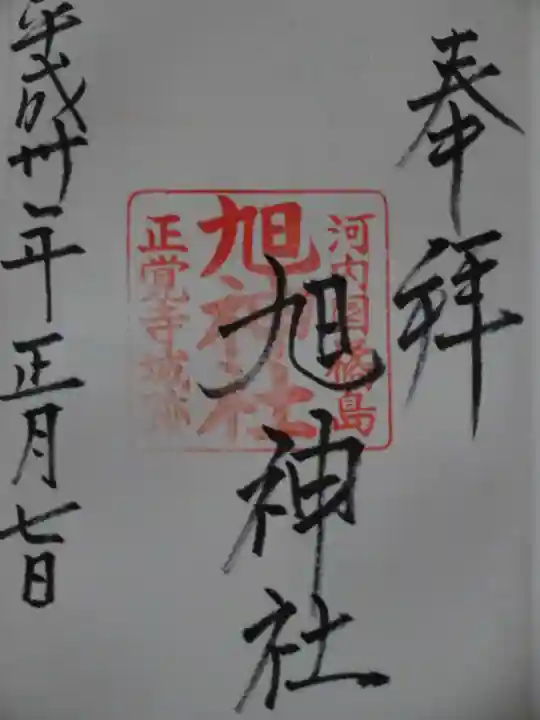 奉拝
河内国橘島
旭神社
正覚寺城跡
旭神社
平成廿一年正月七日